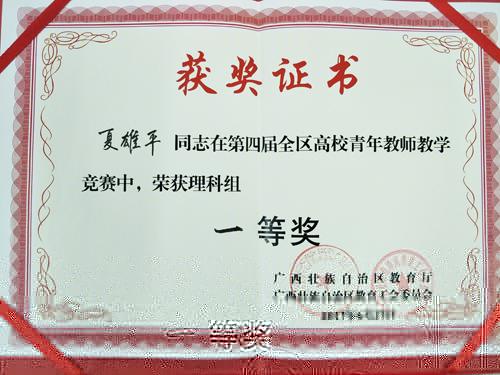 获奖证书
夏雄平 同志在第四届全区高校青年教师教学
竞赛中，荣获理科组
一等奖
广西壮族自治区教育厅
广西壮族自治区教育工会委员会
一等奖